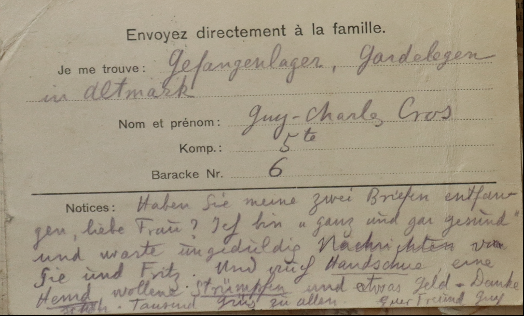 Envoyez directement à la famille.
Je me trouve: Gefangenlager, Gardelegen
in Altmark
Nom et prénom: Guy-Charles Cros
Komp.: 5te
Baracke Nr. 6
Notices: Haben Sie meine zwei Briefen entfan-
gen, liebe Frau? Ich bin „ganz und gar gesund"
und warte ungeduldig Nachrichten von
Sie und Fritz. Und auch Handschue, eine
Hemd wollene Strümpfen und etwas Geld - Danke
Tausend Grüß zu allen. Guy